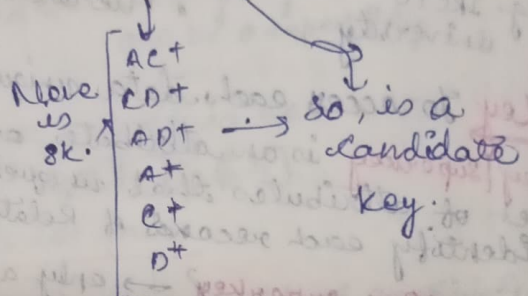 None
is
SK.
AC+
CD+
AD+
A+
C+
D+
so, is a
candidate
key.